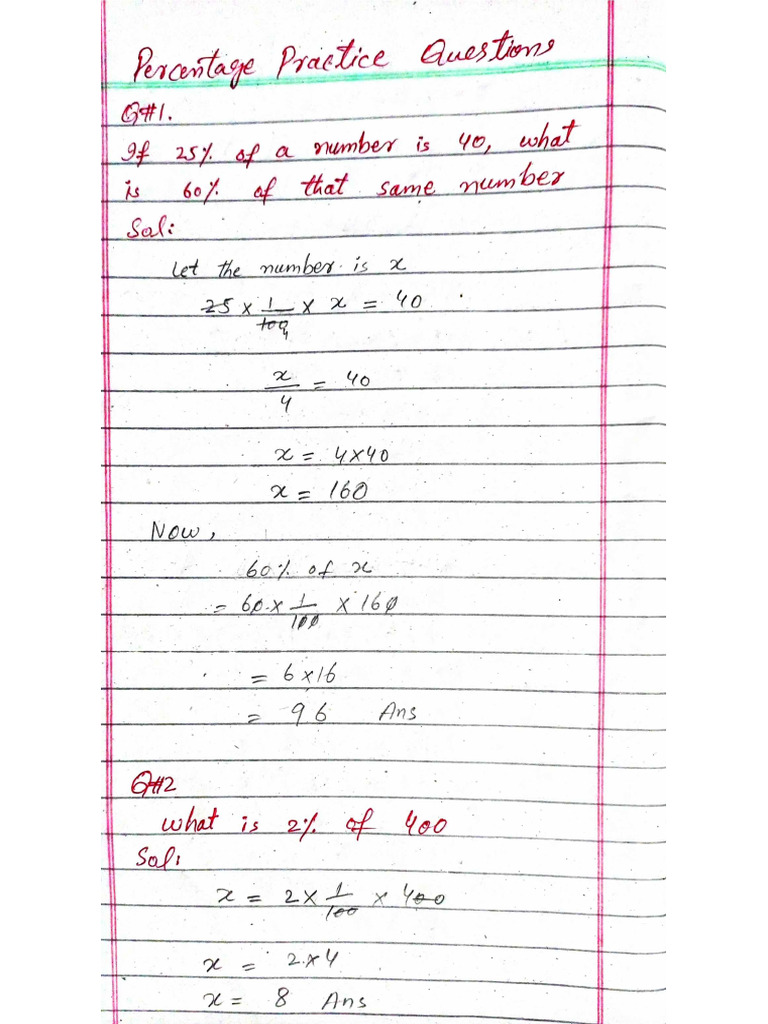 Percentage Practice Questions
Q#1.
If 25% of a number is 40, what
is 60% of that same number
Sol:
Let the number is x
25 × 1/100 × x = 40
4
x/4 = 40
x = 4×40
x = 160
Now,
60% of x
= 60 × 1/100 × 160
= 6×16
= 96 Ans
Q#2
what is 2% of 400
Sol:
x = 2 × 1/100 × 400
x = 2×4
x = 8 Ans